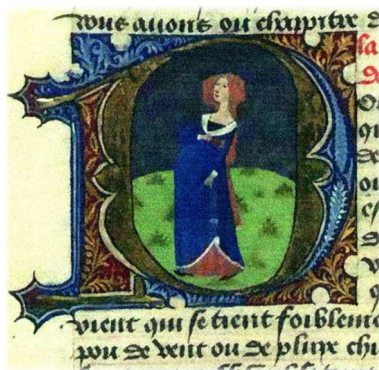 nous auons ou chapitre d
la
de
O
qu
de
ou
d
v
q
vient qui se tient foibleme
pou de vent ou de pluye chi